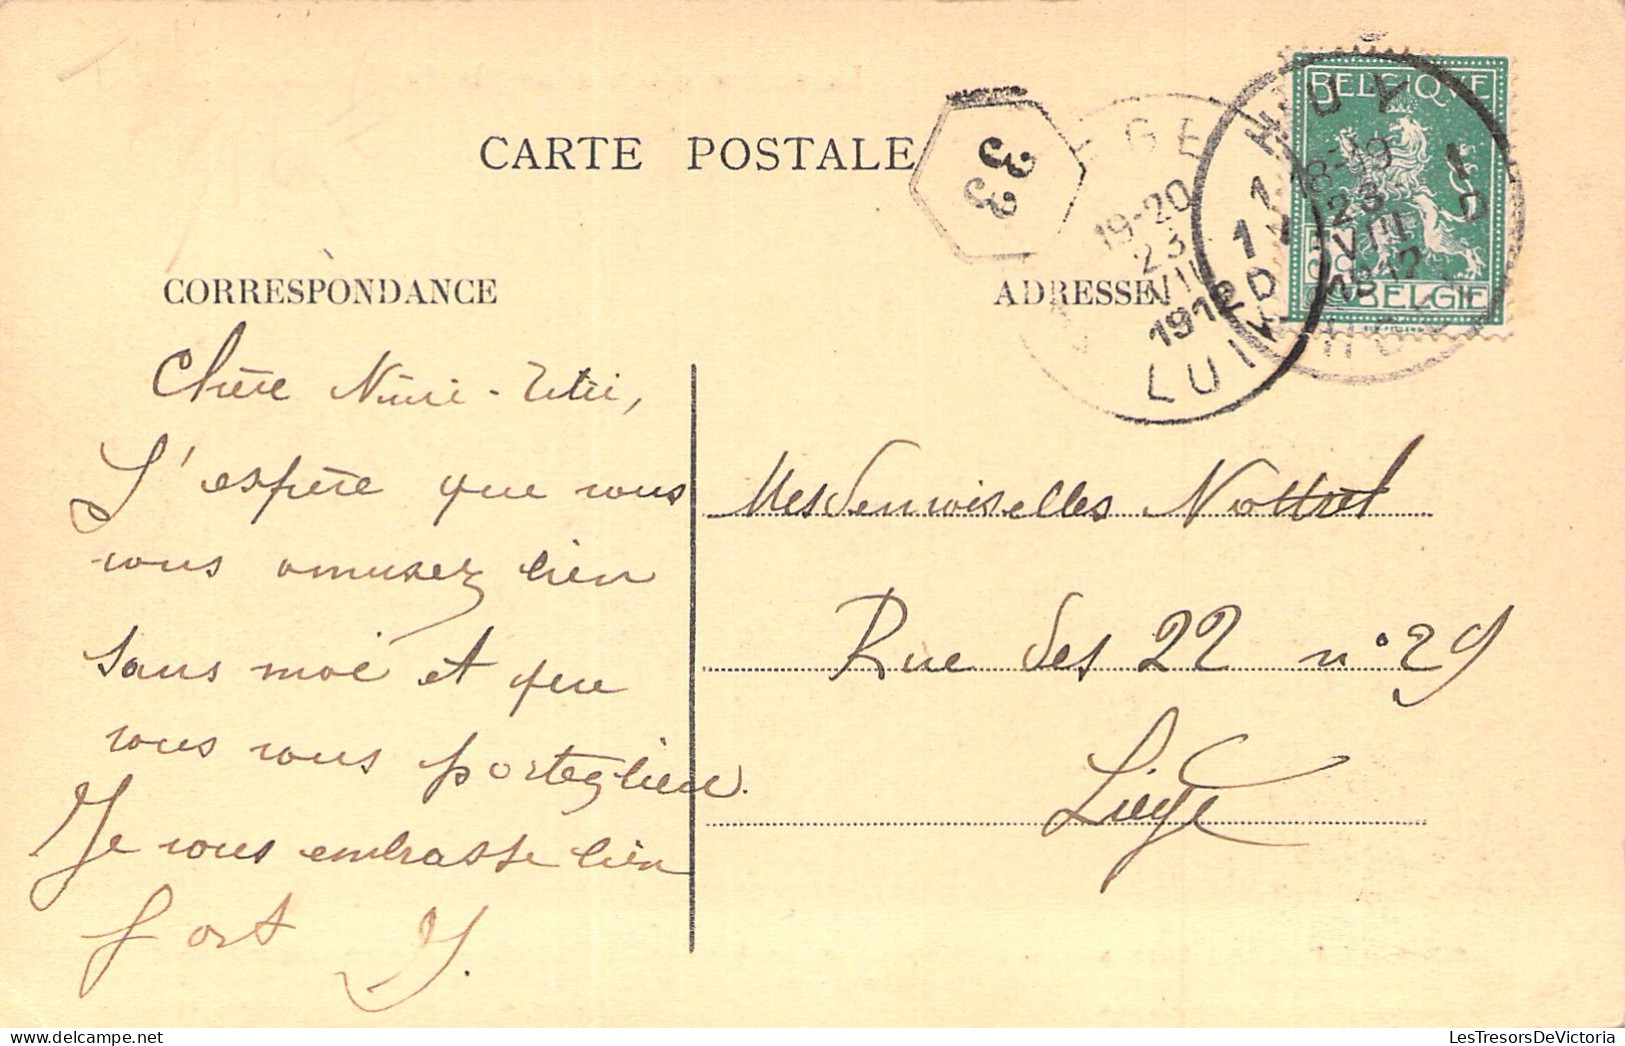 CARTE POSTALE
33
BELGIQUE
BELGIE
HUY
1 1
18-19
23
VIII
1912
D
19-20
23
VIII
1912
LUIK
CORRESPONDANCE
ADRESSE
Chère
J'espère que vous
vous amusez bien
sans moi et que
vous vous portez bien.
Je vous embrasse bien
fort Y.
Mesdemoiselles
Rue des 22 n° 29
Liége
LesTresorsDeVictoria